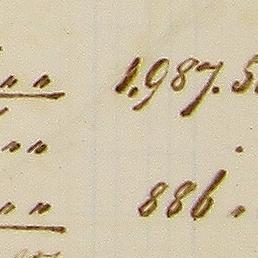 " " 1.987. 5
" " .
" " 886.